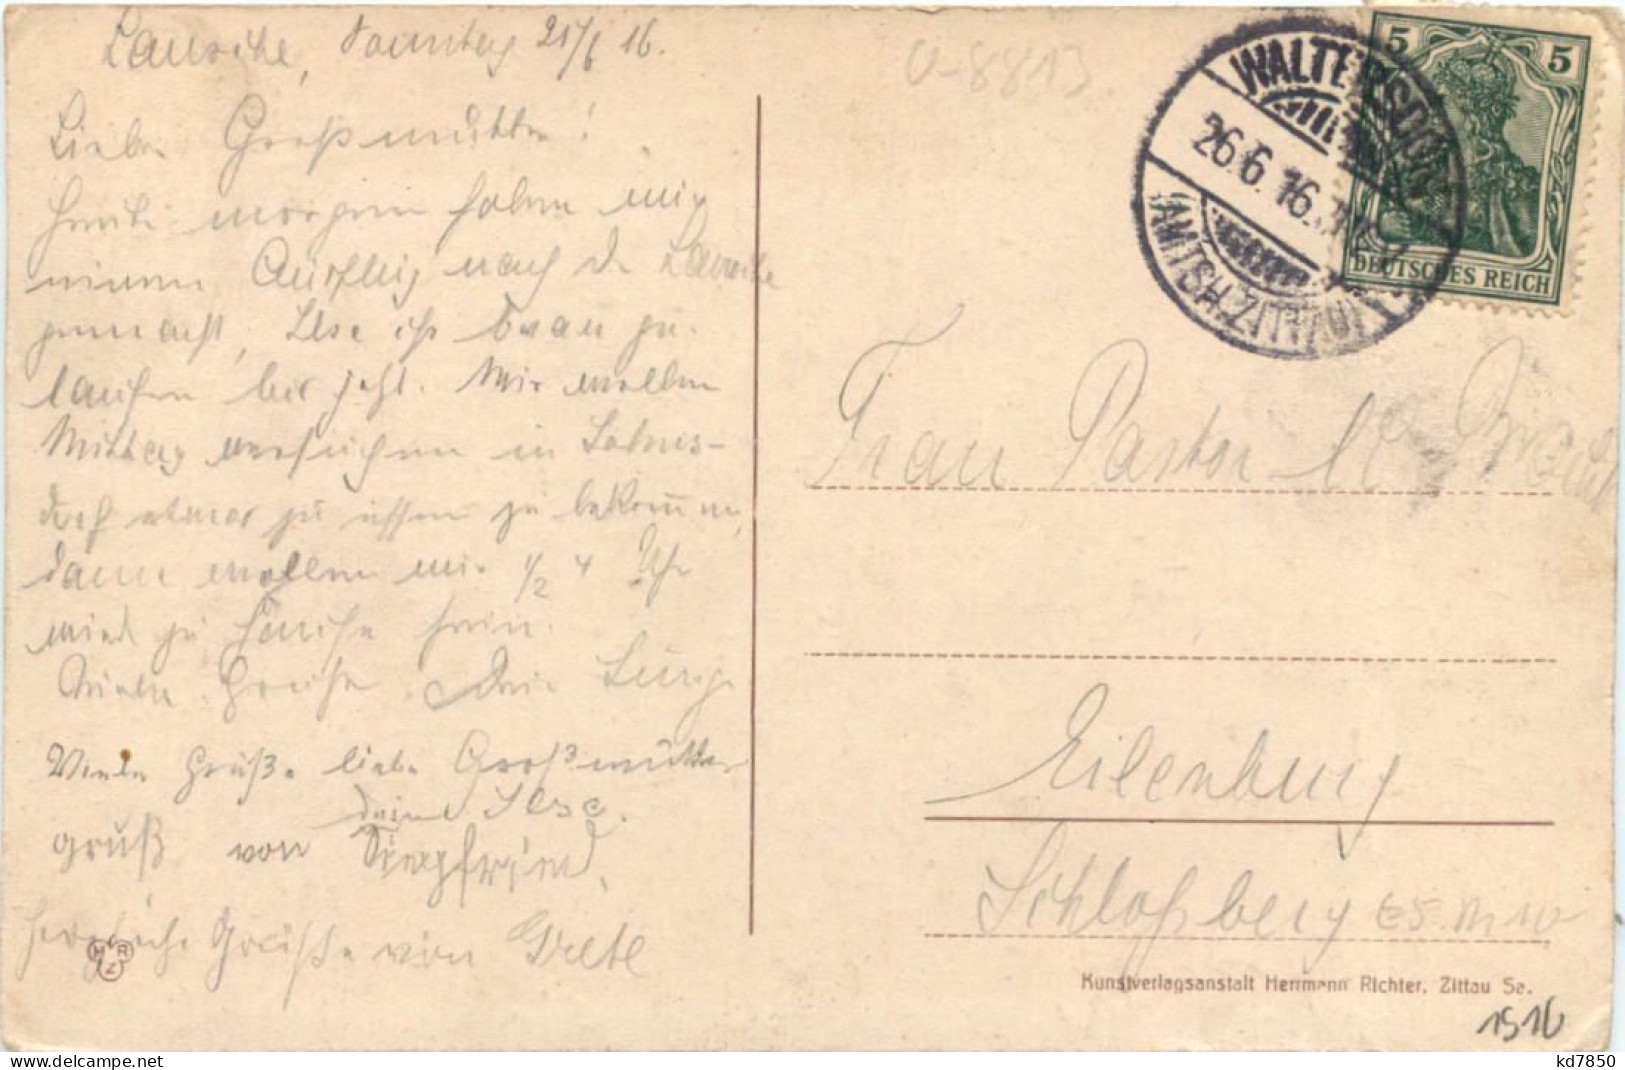 Lausche, Sonntag 25/6 16.
Liebe Großmutter!
Heute morgen haben wir
einen Ausflug nach der Lausche
gemacht, Ilse ist brav ge-
laufen bis jetzt. Wir wollen
Mittag versuchen in
dorf etwas zu essen zu bekommen,
dann wollen wir 1/2 4 Uhr
wieder zu Hause sein.
Viele Grüße Dein
Viele Grüße liebe Großmutter
deine Ilse.
gruß von Siegfried.
Herzliche Grüße von Grete
H R Z
U-8813
WALTERSDORF
26.6.16.
(AMTSH. ZITTAU)
5 5
DEUTSCHES REICH
Frau Pastor
Eilenburg
Schloßberg
Kunstverlagsanstalt Herrmann Richter, Zittau Sa.
1916
www.delcampe.net
kd7850